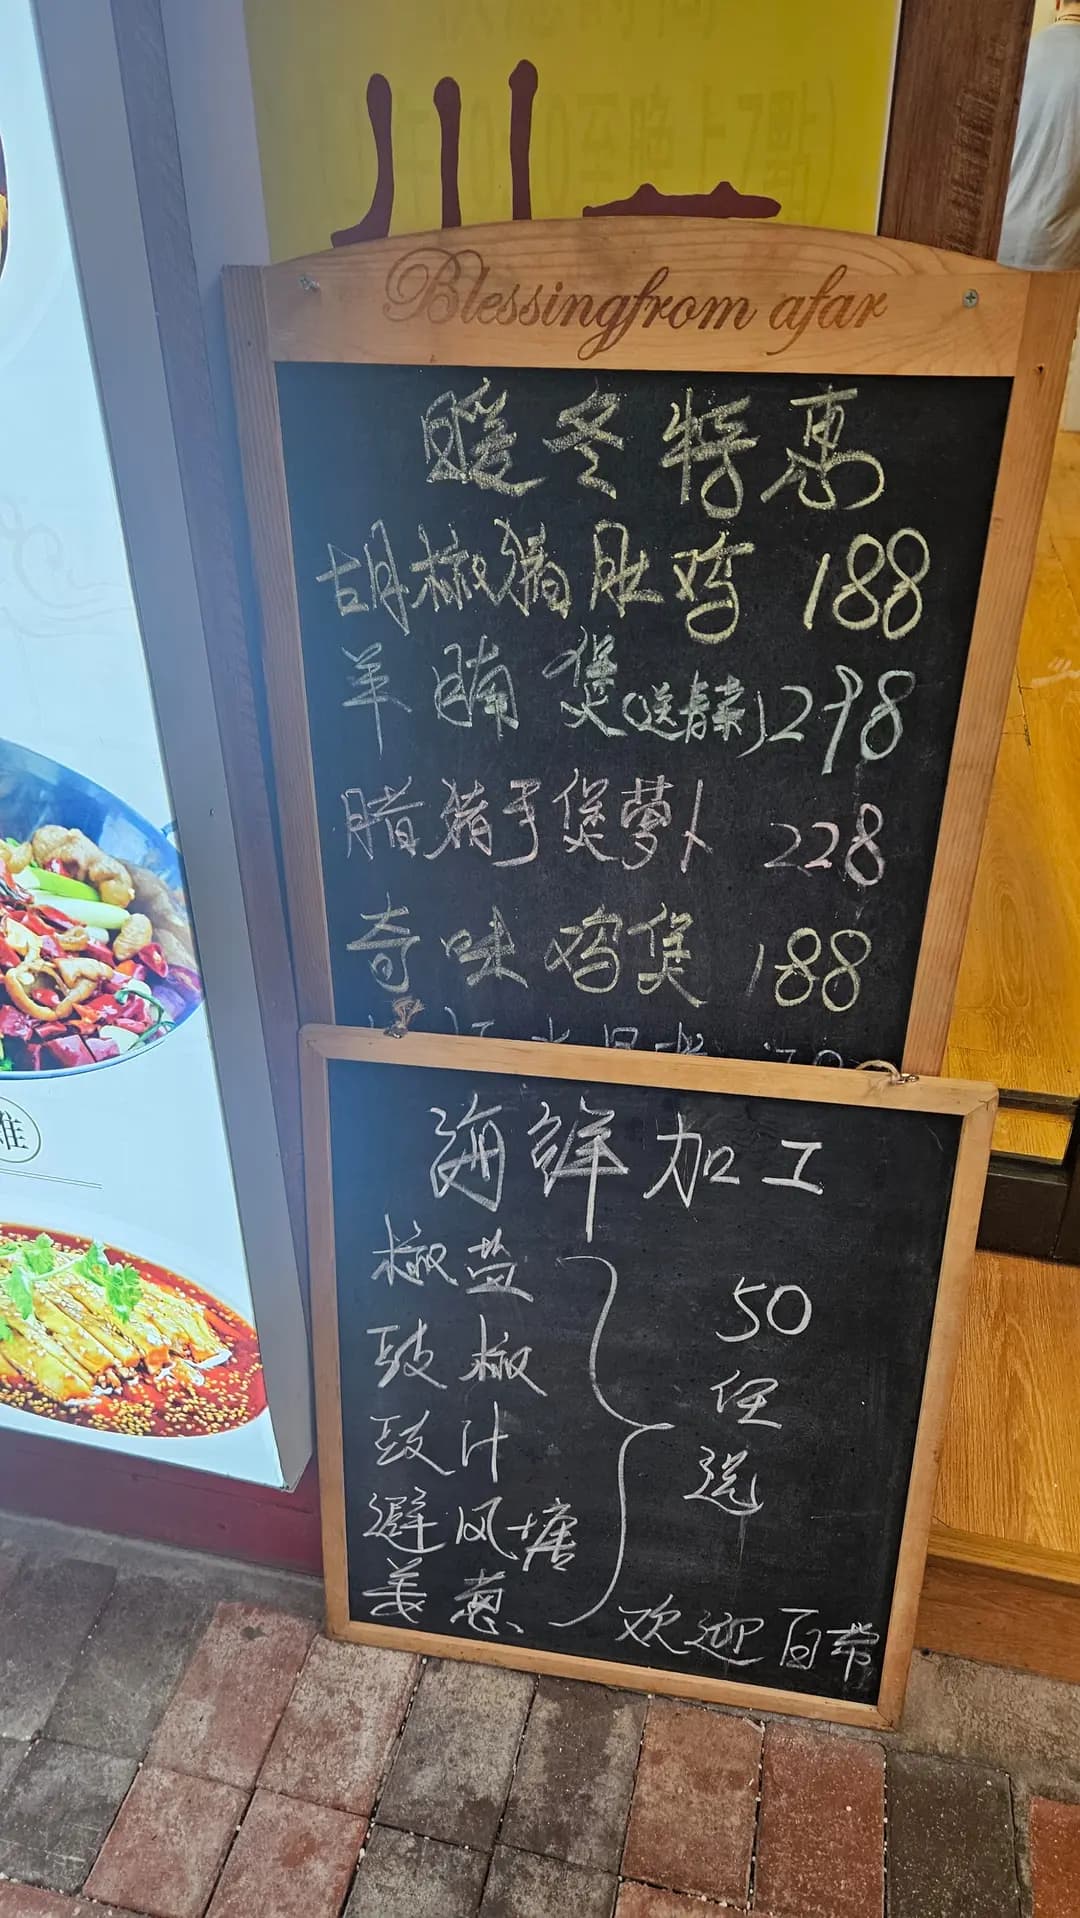 川一
Blessing from afar
暖冬特惠
胡椒猪肚鸡 188
羊腩煲(送青菜) 298
腊猪手煲萝卜 228
奇味鸡煲 188
海鲜加工
椒盐
豉椒
豉汁
避风塘
姜葱
50
任
选
欢迎自带